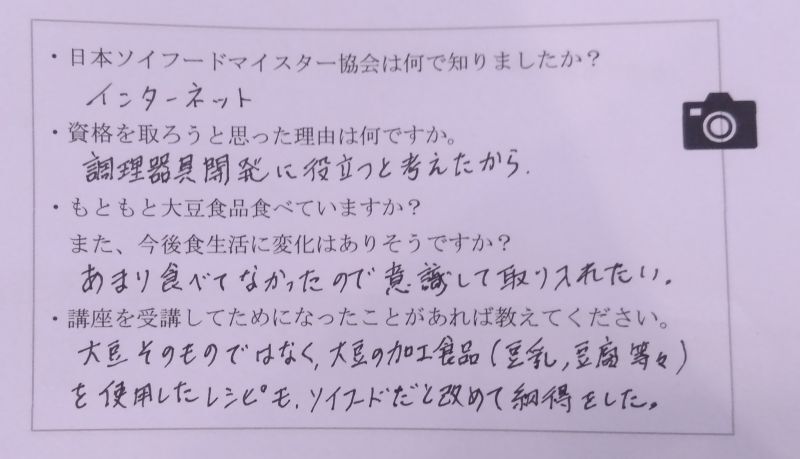 ・日本ソイフードマイスター協会は何で知りましたか?
インターネット
・資格を取ろうと思った理由は何ですか。
調理器具開発に役立つと考えたから.
・もともと大豆食品食べていますか?
また、今後食生活に変化はありそうですか?
あまり食べてなかったので意識して取り入れたい。
・講座を受講してためになったことがあれば教えてください。
大豆そのものではなく, 大豆の加工食品(豆乳, 豆腐等々)
を使用したレシピも, ソイフードだと改めて納得をした。